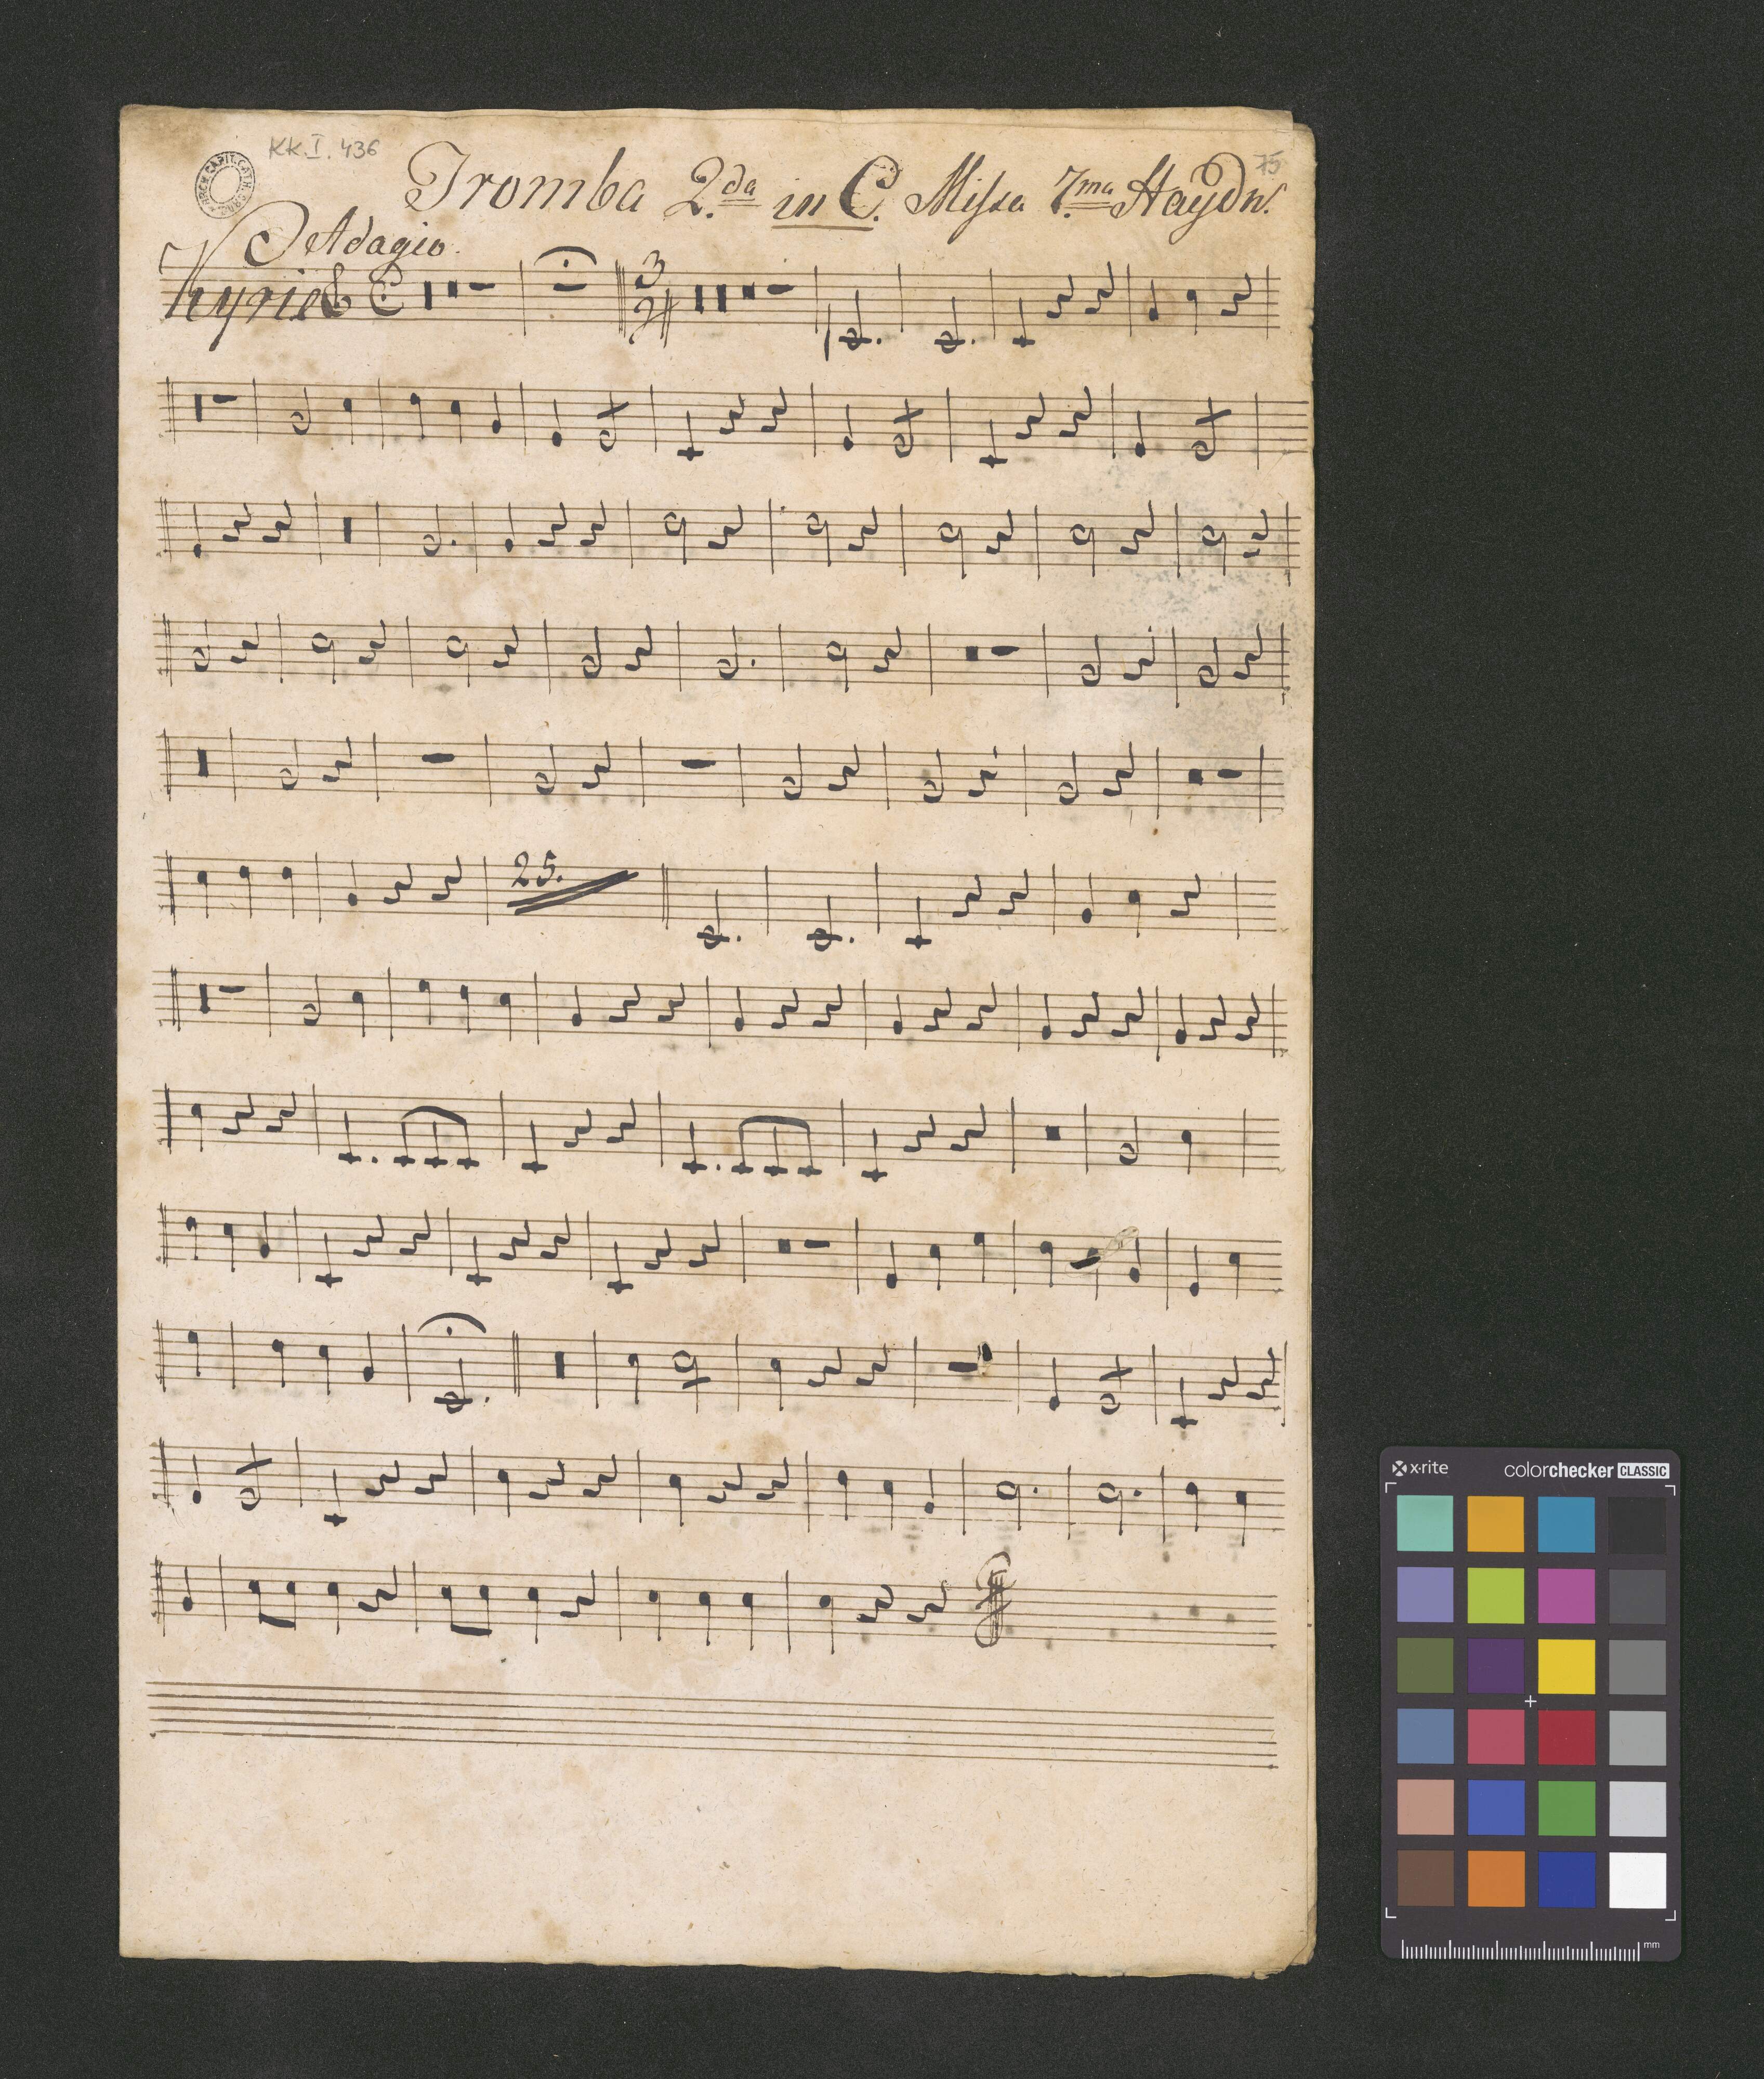 KK.I.436
75
Tromba 2.da in C. Missa 7.ma Haydn.
Adagio.
Kyrie
C
3
4
25.
x·rite colorchecker CLASSIC
mm